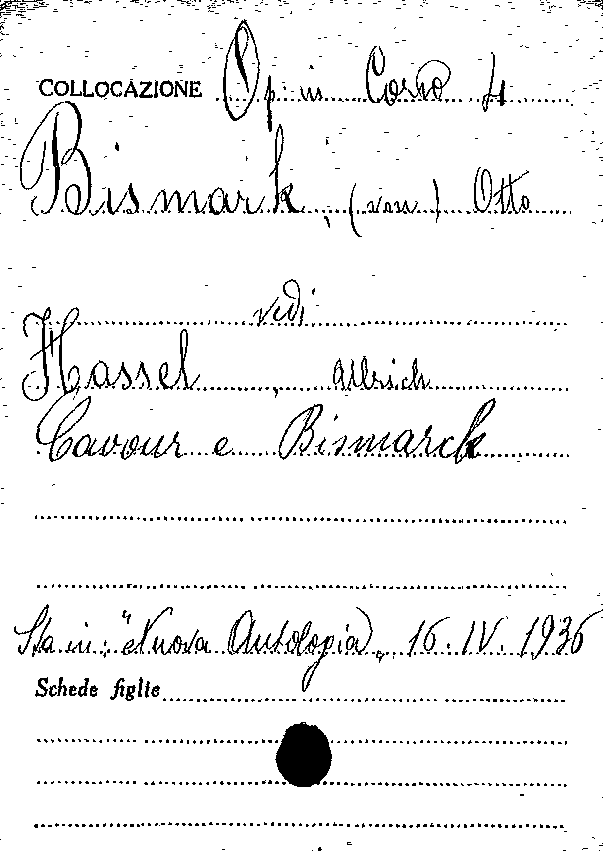 COLLOCAZIONE Op. in Corso 4
Bismark, (von) Otto
vedi
Hassel, Ulrich
Cavour e Bismarck
Sta in: "Nuova Antologia", 16.IV.1936
Schede figlie